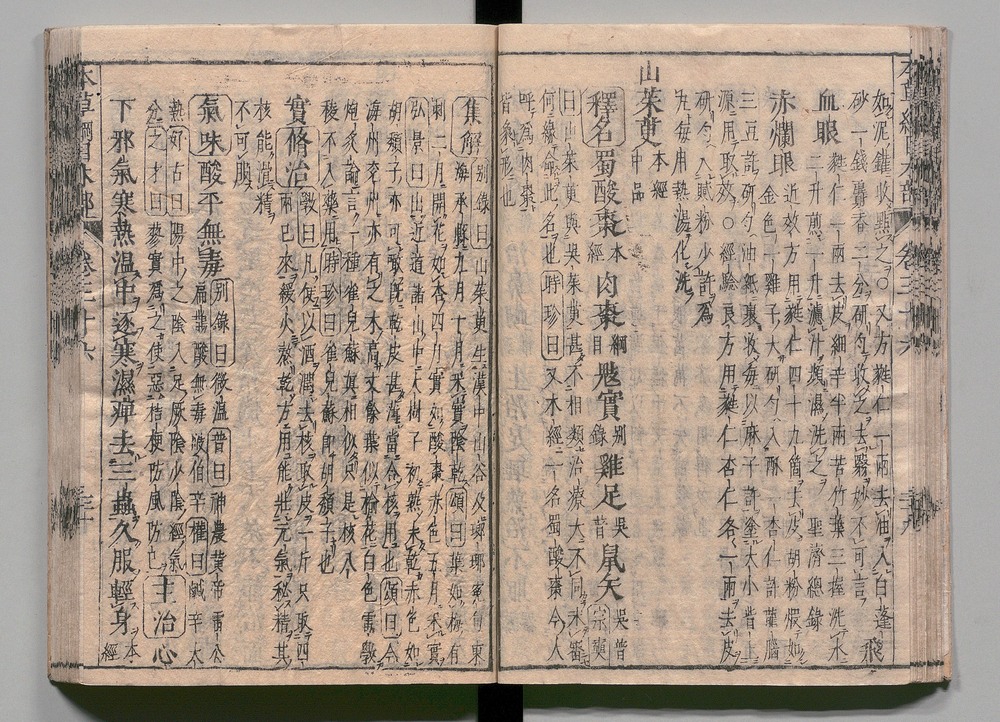 如泥罐收點之○又方蕤仁一兩去油入白蓬
砂一錢麝香二分研勻收之去瞖妙不可言 飛
血眼 蕤仁一兩去皮細辛半兩苦竹葉三握洗水
二升煎一升濾汁頻濕洗之 聖濟總錄
赤爛眼 近效方用蕤仁四十九箇去皮胡粉煅如
金色一雞子大研勻入酥一杏仁許龍腦
三豆許研勻油紙裹收每以麻子許塗大小眥上
源用取效○經驗良方用蕤仁杏仁各一兩去皮
研勻入膩粉少許為
丸每用熱湯化洗
山茱萸 本經中品
釋名 蜀酸棗 本經 肉棗 綱目 鬾實 别錄 雞足 吳普 鼠矢 吳普 宗奭
曰山茱萸與吳茱萸甚不相類治療大不同未審
何緣命此名也 時珍曰 又木經一名蜀酸棗今人
呼為肉棗
皆象形也
集解 别錄曰 山茱萸生漢中山谷及瑯琊冤句東
海承縣九月十月采實陰乾 頌曰 葉如梅有
刺二月開花如杏四月實如酸棗赤色五月采實
弘景曰 出近道諸山中大樹子初熟未乾赤色如
胡頹子亦可噉既乾皮甚薄當合核用也 頌曰 今
海州兗州亦有之木高丈餘葉似榆花白色雷斆
炮炙論言一種雀兒蘇真相似只是核八
稜不入藥用 時珍曰 雀兒蘇即胡頹子也
實 脩治 斆曰 凡使以酒潤去核取皮一斤只取四
兩已來緩火熬乾方用能壯元氣秘精其
核能滑精
不可服
氣味 酸平無毒 别錄曰 微溫 普曰 神農黃帝雷公
扁鵲酸無毒岐伯辛 權曰 鹹辛大
熱 好古曰 陽中之陰入足厥陰少陰經氣
分 之才曰 蓼實為之使惡桔梗防風防己 主治 心
下邪氣寒熱溫中逐寒濕痺去三蟲久服輕身 本經